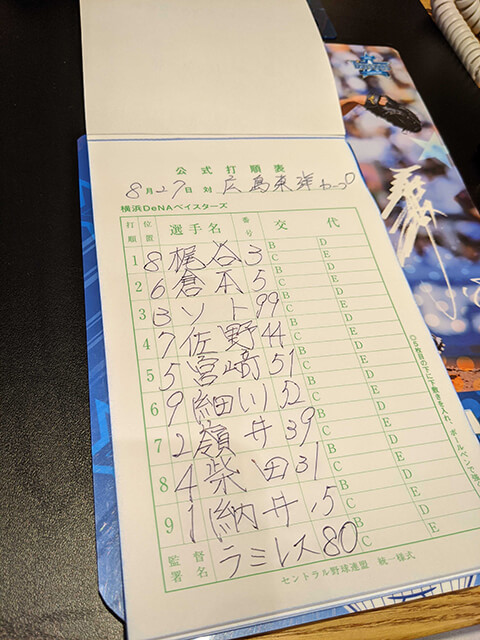 公式打順表
8月27日 対 広島東洋カープ
横浜DeNAベイスターズ
打順 位置 選手名 番号 交代
1 8 梶谷 3 B C D E
2 6 倉本 5 B C D E
3 3 ソト 99 B C D E
4 7 佐野 44 B C D E
5 5 宮﨑 51 B C D E
6 9 細川 52 B C D E
7 2 嶺井 39 B C D E
8 4 柴田 31 B C D E
9 1 納井 15 B C D E
監督署名 ラミレス 80
セントラル野球連盟 統一様式